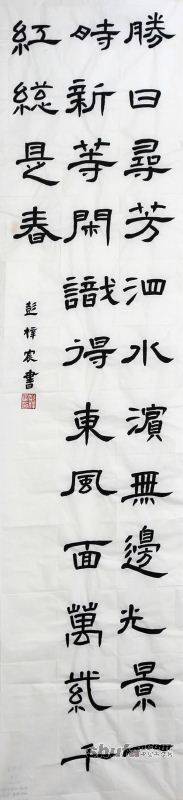 勝日尋芳泗水濱無邊光景一
時新等閑識得東風面萬紫千
紅總是春
彭梓宸書